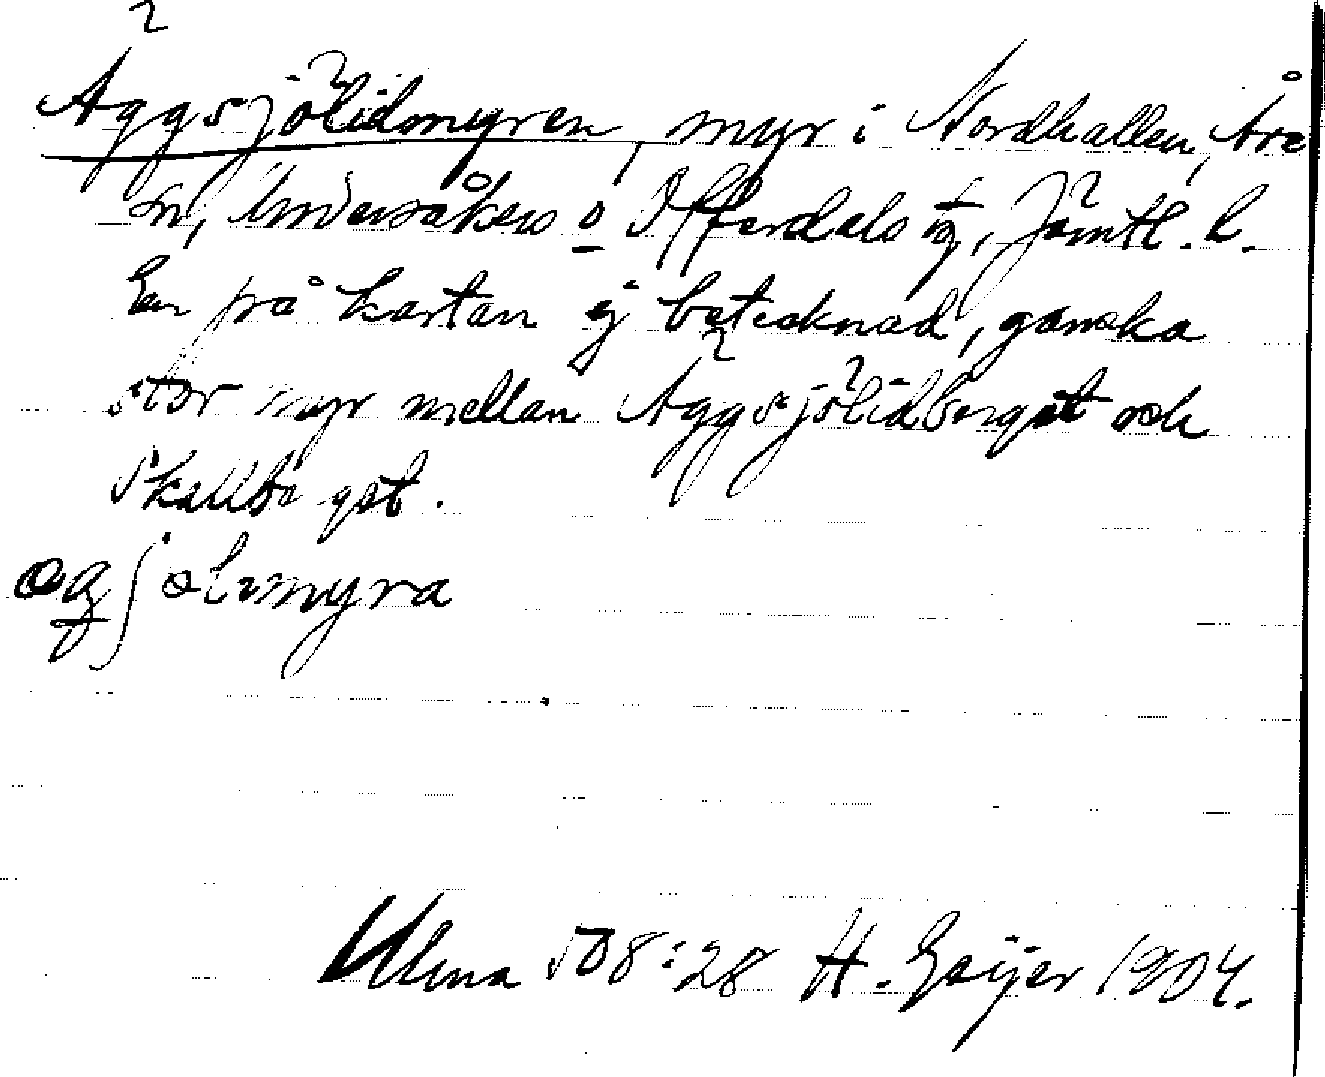 Äggsjölidmyren, myr i Nordhallen, Åre
sn, Undersåkers o Offerdals tg, Jämtl. l.
En på kartan ej betecknad, ganska
stor myr mellan Äggsjölidberget och
Skallberget.
Ulma 508:28 H. Geijer 1904.